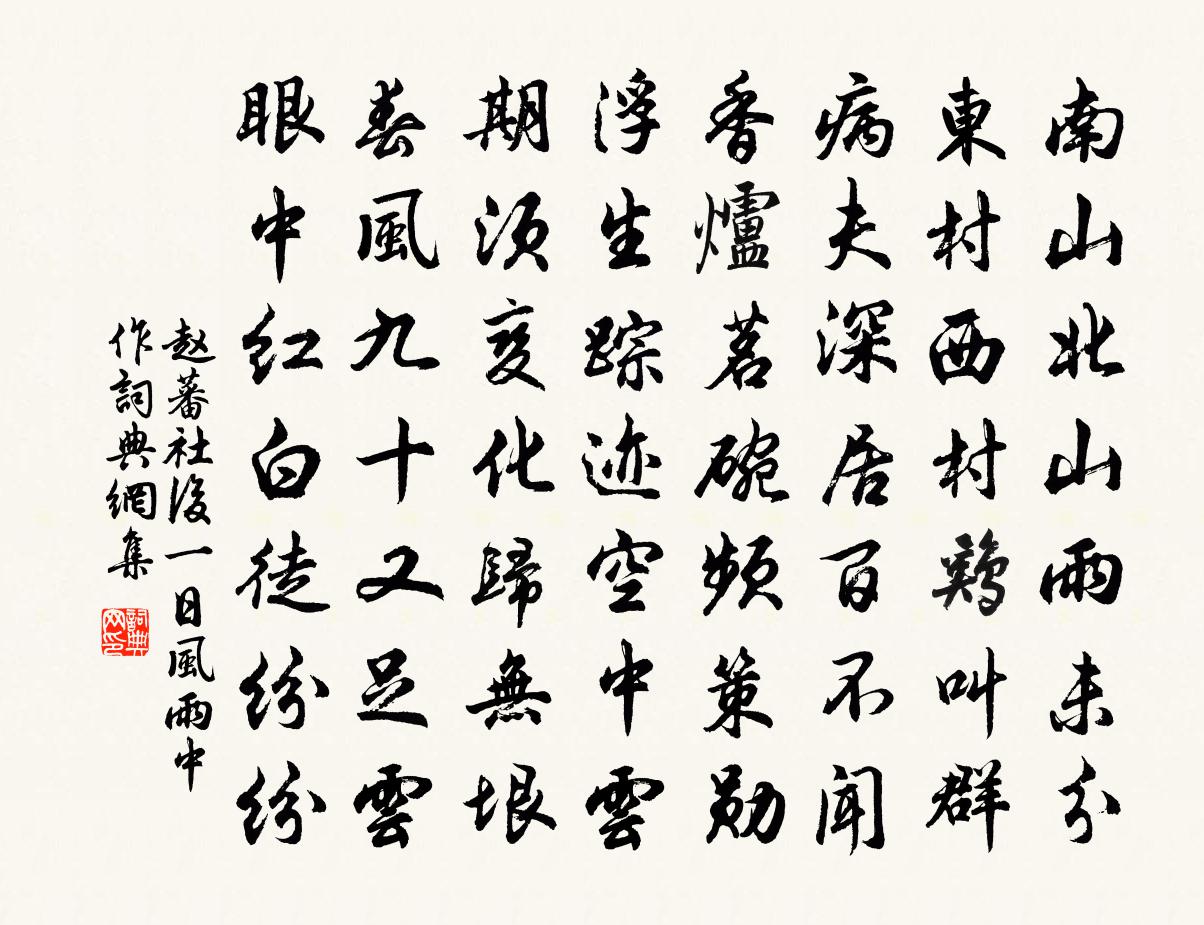 南山北山雨未分
東村西村鷄叫群
病夫深居百不聞
香爐茗碗頻策勛
浮生踪迹空中雲
期須变化歸無垠
春風九十又足雲
眼中紅白徒紛紛
赵蕃社後一日風雨中
作詞典網集
詞典
网印